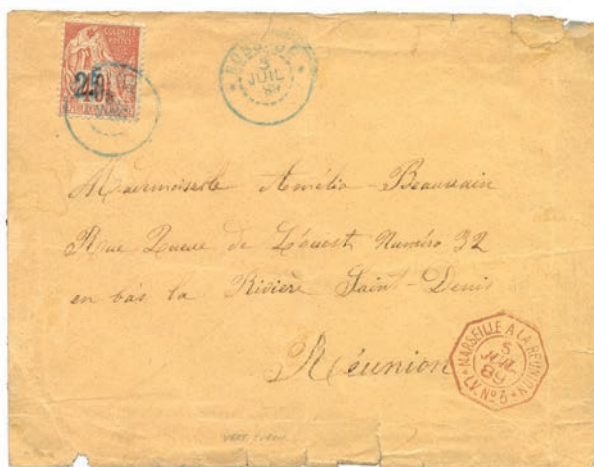 COLONIES
POSTES
25
3
JUIL
89
Mademoiselle Amélia Beauvain
Rue Queue de L'ouest Numéro 32
en bas la Rivière Saint-Denis
Réunion
MARSEILLE A LA REUNION
5
JUIL
89